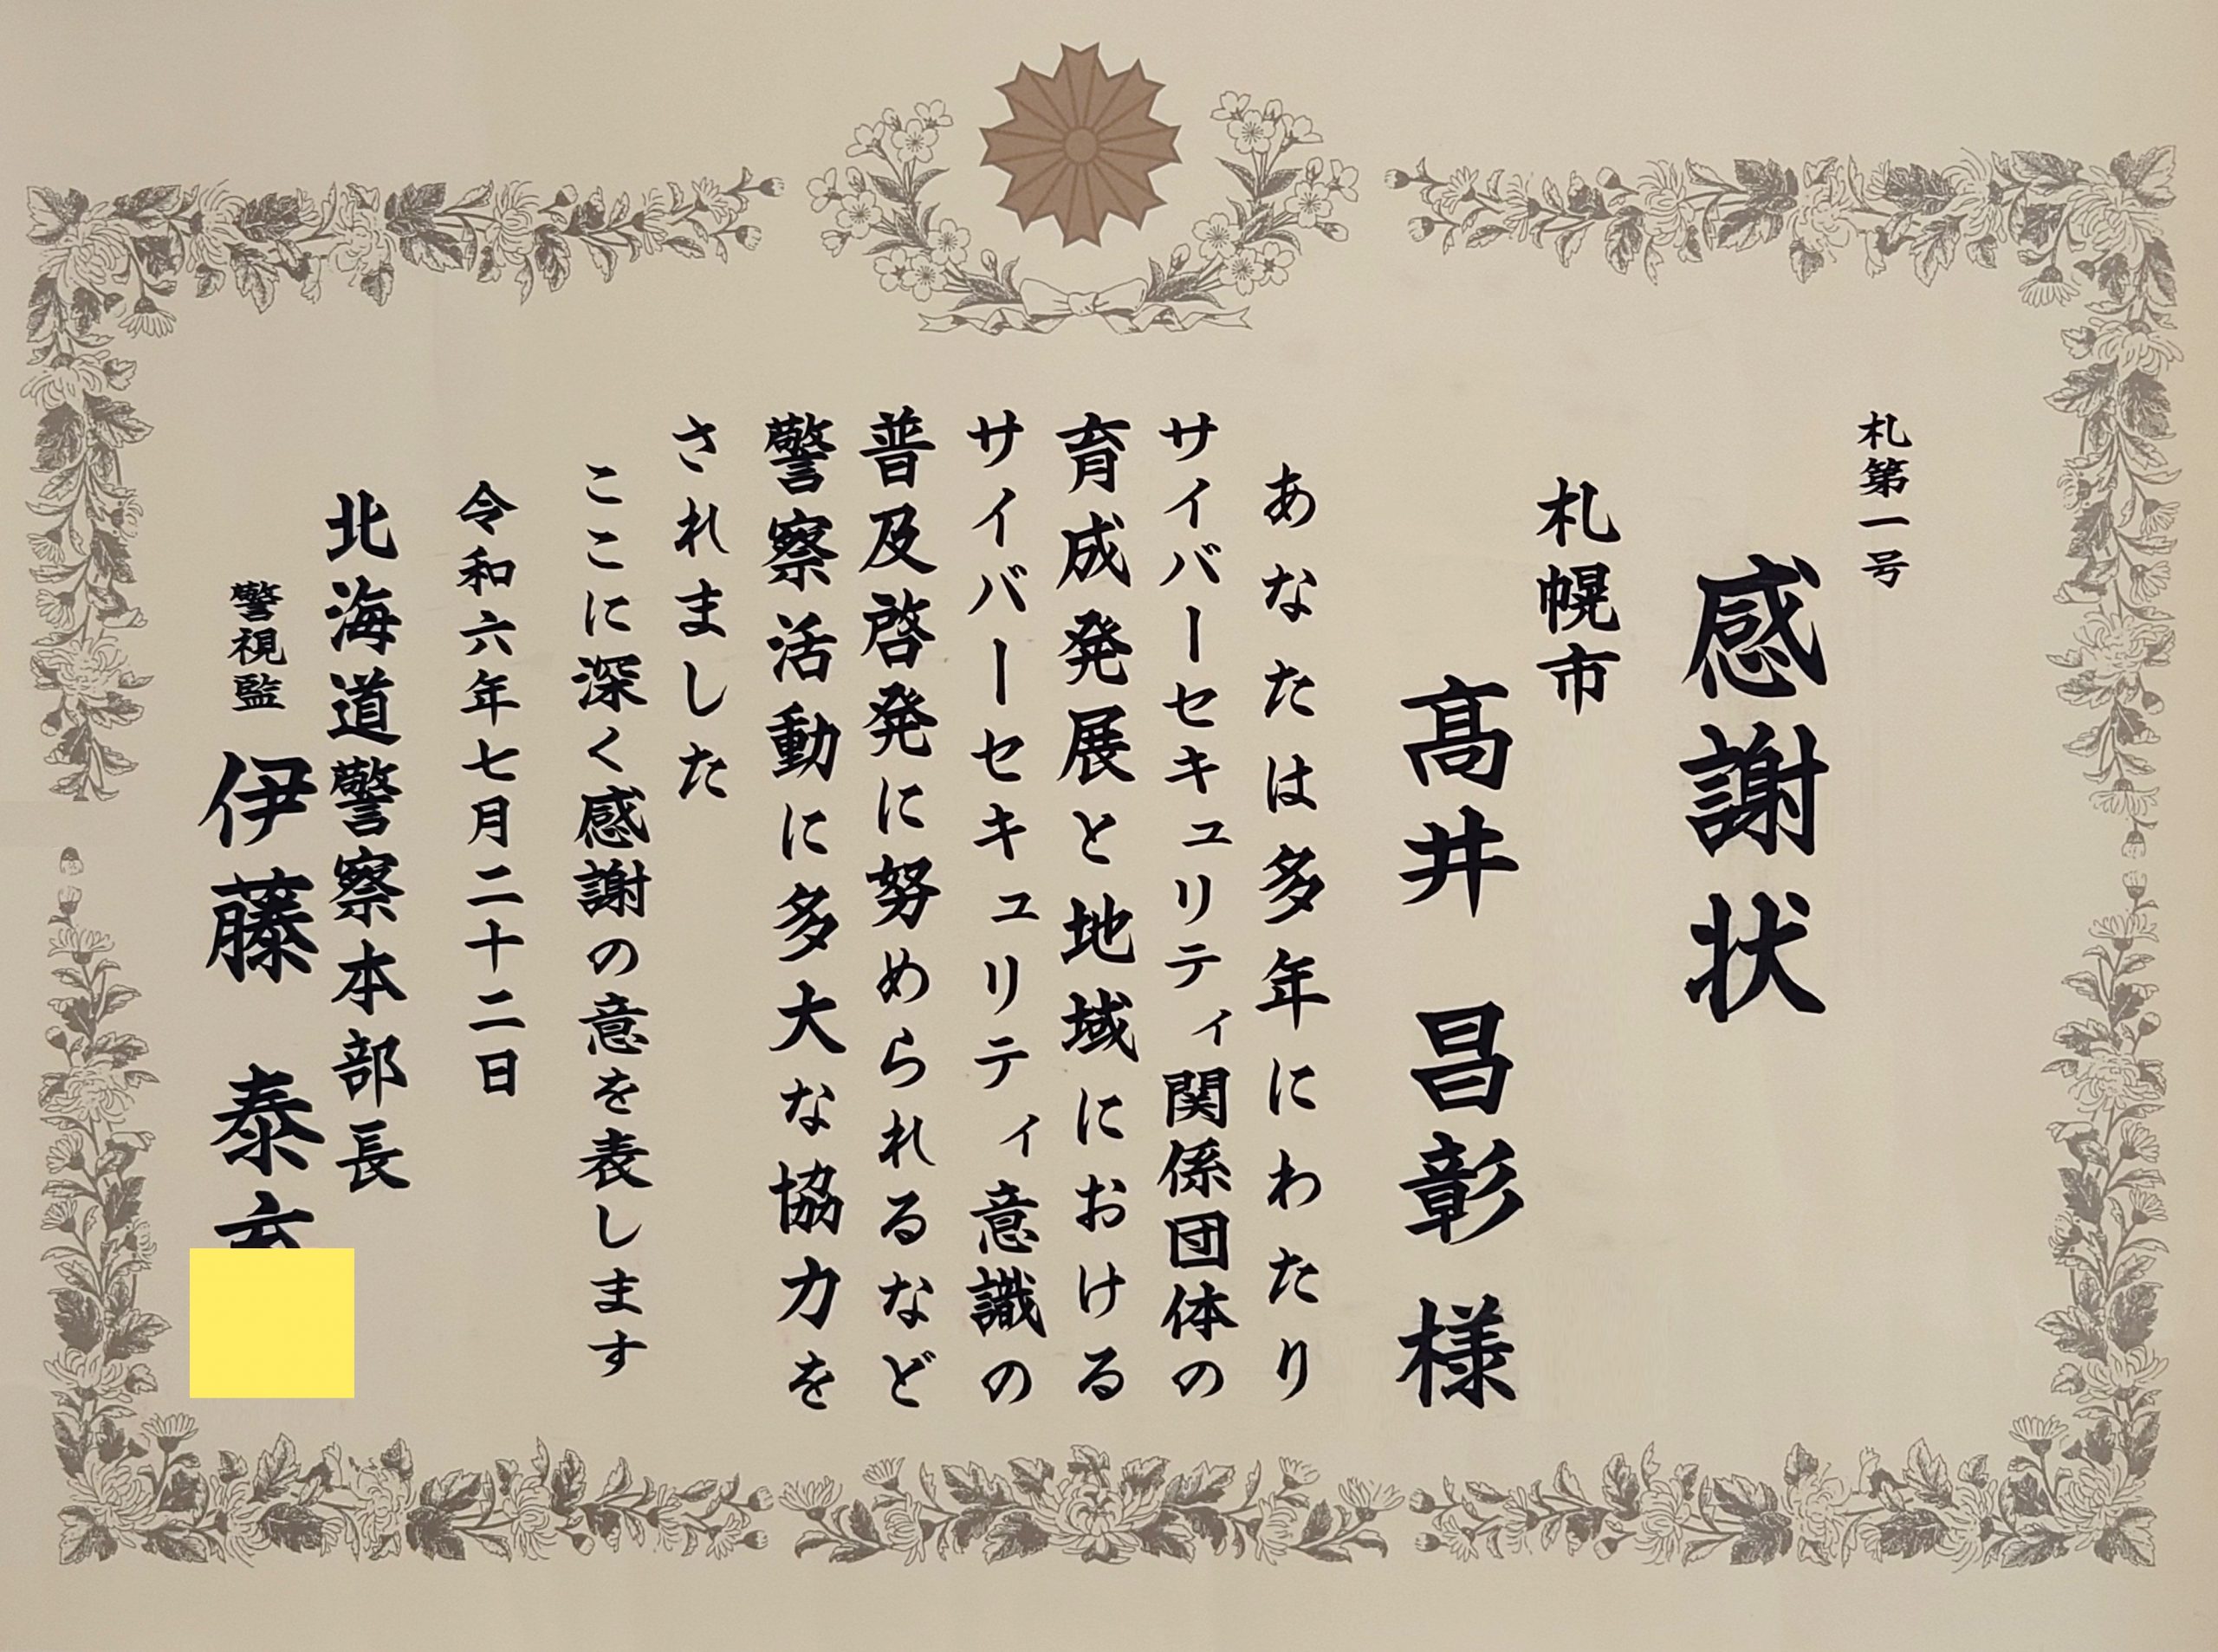 札第一号
感謝状
札幌市
髙井 昌彰 様
あなたは多年にわたり
サイバーセキュリティ関係団体の
育成発展と地域における
サイバーセキュリティ意識の
普及啓発に努められるなど
警察活動に多大な協力を
されました
ここに深く感謝の意を表します
令和六年七月二十二日
北海道警察本部長
警視監 伊藤 泰